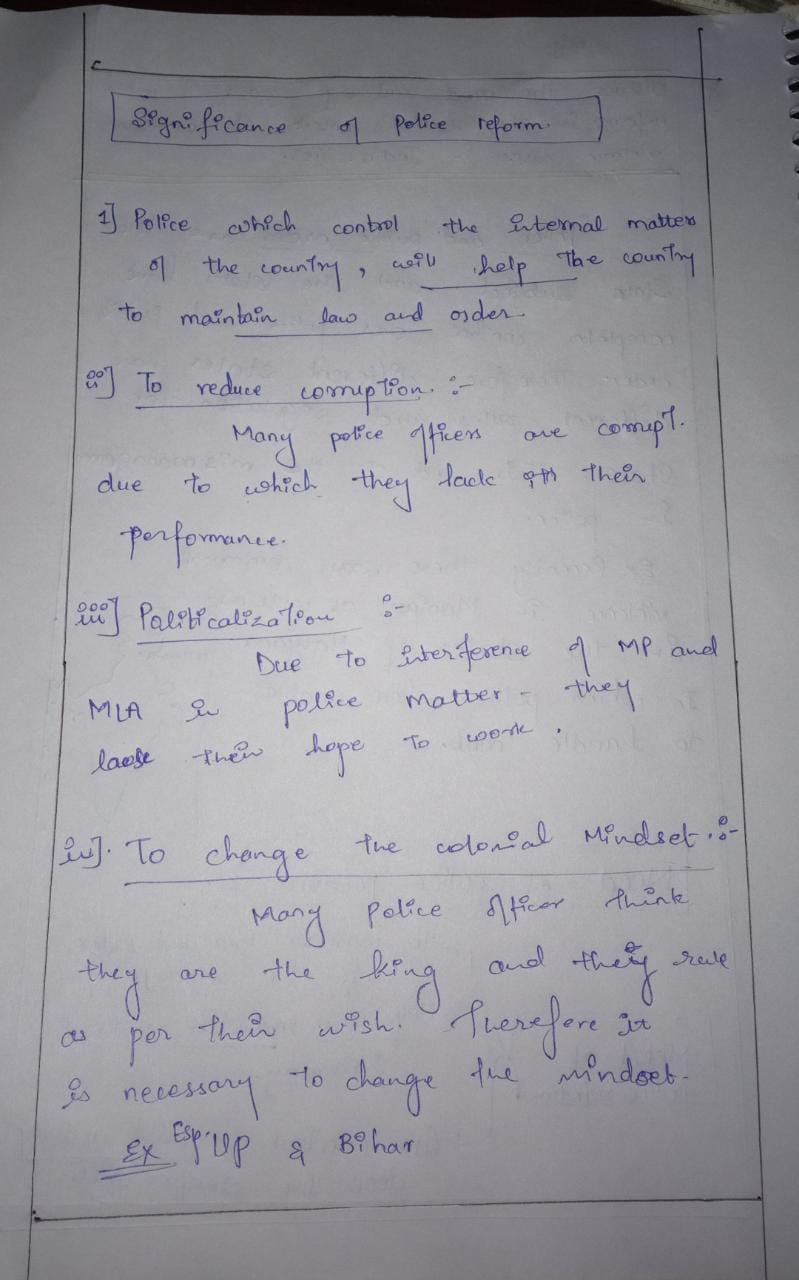 Significance of Police reform.
1] Police which control the internal matters
of the country, will help the country
to maintain law and order.
ii] To reduce corruption :-
Many police officers are corrupt.
due to which they lack their
performance.
iii] Politicalization :-
Due to interference of MP and
MLA in police matter - they
loose their hope to work.
iv]. To change the colonial Mindset. :-
Many Police officer think
they are the king and they rule
as per their wish. Therefore it
is necessary to change the mindset.
Ex Esp. UP & Bihar